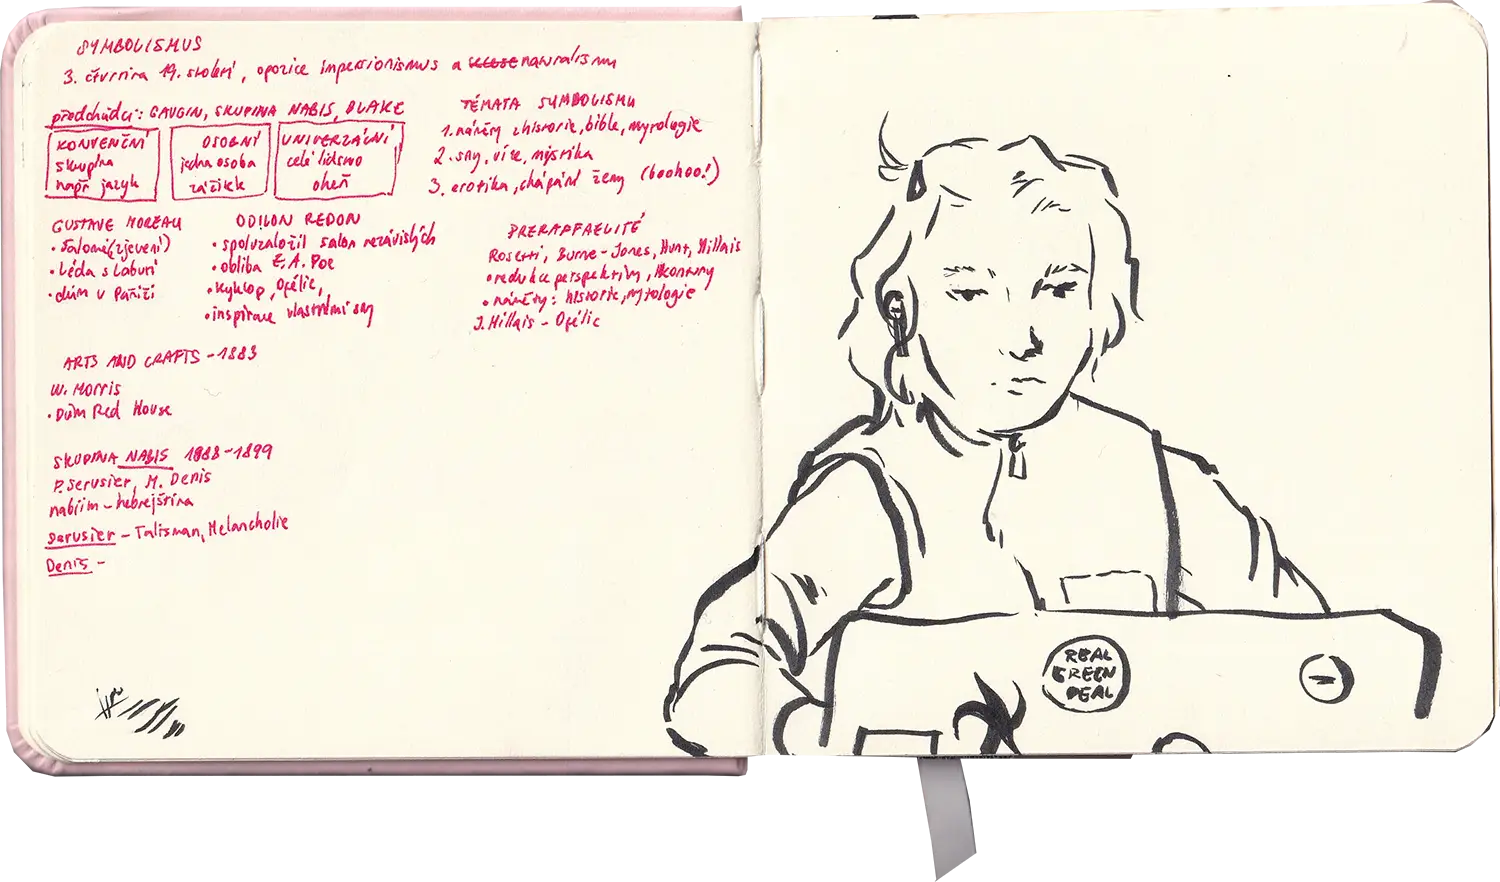 SYMBOLISMUS
3. čtvrtina 19. století, opozice impersionismus a naturalismu
předchůdci: GAUGIN, SKUPINA NABIS, BLAKE
KONVENČNÍ
skupina
např jazyk
OSOBNÍ
jedna osoba
zážitek
UNIVERZÁLNÍ
celé lidstvo
oheň
TÉMATA SYMBOLISMU
1. náměty z historie, bible, mytologie
2. sny, vize, mystika
3. erotika, chápání ženy (boohoo!)
GUSTAVE MOREAU
• Salome (zjevení)
• Léda s labutí
• dům v Paříži
ODILON REDON
• spoluzaložil salon nezávislých
• obliba E. A. Poe
• kyklop, Ofélie,
• inspirace vlastními sny
PRERAFFAELITÉ
Rosetti, Burne-Jones, Hunt, Millais
• redukce perspektivy,
• náměty: historie, mytologie
J. Millais - Ofélie
ARTS AND CRAFTS - 1883
W. Morris
• Dům Red House
SKUPINA NABIS 1888-1899
P. Serusier, M. Denis
nabiim - hebrejština
Serusier - Talisman, Melancholie
Denis -
REAL
GREEN
DEAL